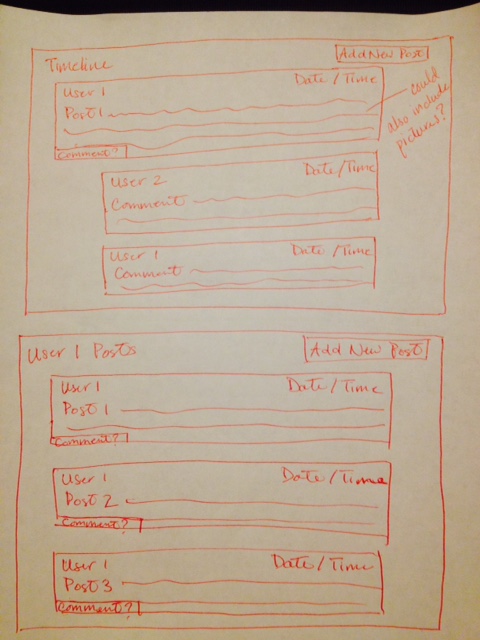 Timeline Add New Post
User 1 Date/Time
Post 1
could
also include
pictures?
Comment?
User 2 Date/Time
Comment
User 1 Date/Time
Comment
User 1 Posts Add New Post
User 1 Date/Time
Post 1
Comment?
User 1 Date/Time
Post 2
Comment?
User 1 Date/Time
Post 3
Comment?